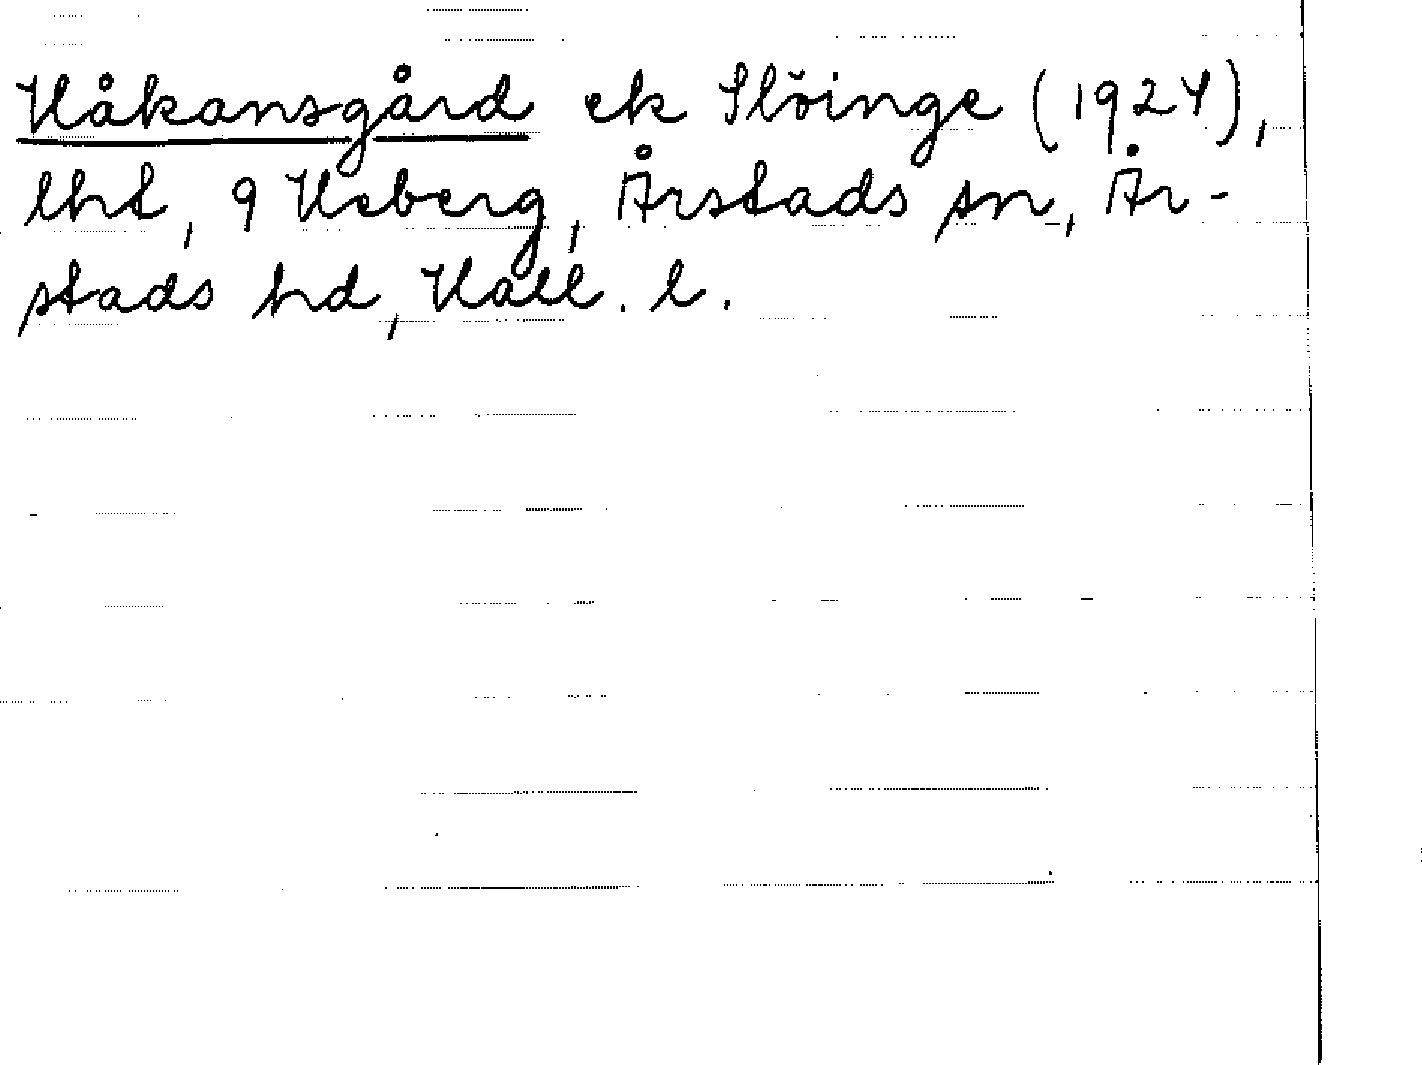 Håkansgård ek Slöinge (1924),
lht, 9 Heberg, Årstads sn, År-
stads hd, Hall. l.